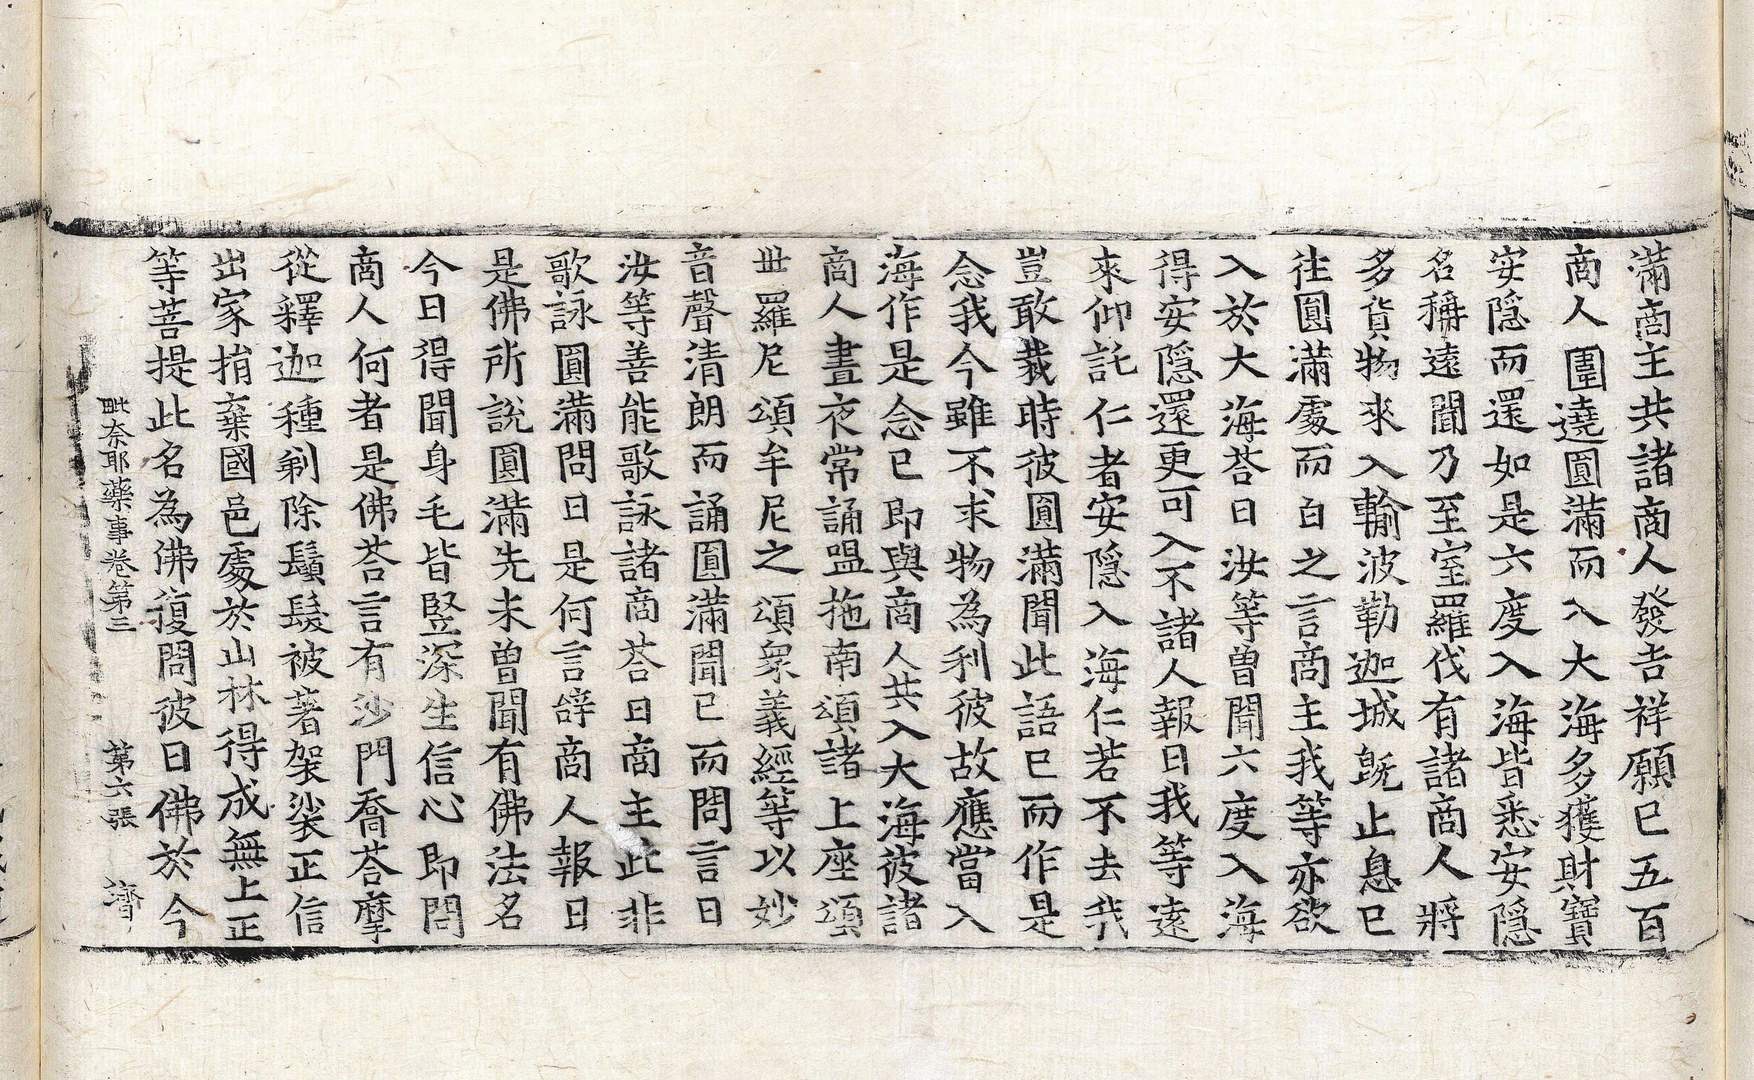 滿商主共諸商人發吉祥願已五百
商人圍遶圓滿而入大海多獲財寶
安隱而還如是六度入海皆悉安隱
名稱遠聞乃至室羅伐有諸商人將
多貨物來入輸波勒迦城旣止息已
往圓滿處而白之言商主我等亦欲
入於大海荅曰汝等曾聞六度入海
得安隱還更可入不諸人報曰我等遠
來仰託仁者安隱入海仁若不去我
豈敢裁時彼圓滿聞此語已而作是
念我今雖不求物為利彼故應當入
海作是念已即與商人共入大海彼諸
商人晝夜常誦嗢拖南頌諸上座頌
世羅尼頌牟尼之頌衆義經等以妙
音聲清朗而誦圓滿聞已而問言曰
汝等善能歌詠諸商荅曰商主此非
歌詠圓滿問曰是何言辝商人報曰
是佛所說圓滿先未曾聞有佛法名
今日得聞身毛皆竪深生信心即問
商人何者是佛荅言有沙門喬荅摩
從釋迦種剃除鬚髮被著袈裟正信
出家捨棄國邑處於山林得成無上正
等菩提此名為佛復問彼曰佛於今
毗奈耶藥事卷第三 第六張 濟